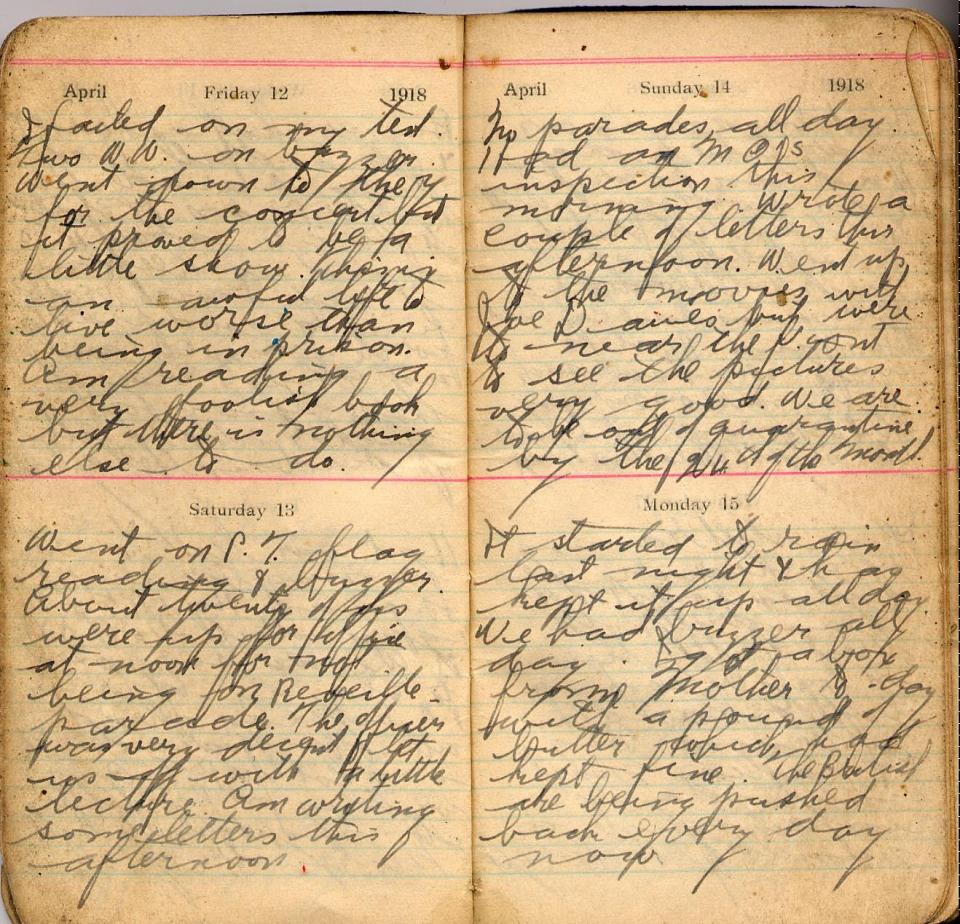 April Friday 12 1918
I failed on my test.
two W.W. on buzzer.
Went down to the Y
for the concert but
it proved to be a
little show. This is
an awful life to
live worse than
being in prison.
Am reading a
very foolish book
but there is nothing
else to do.
Saturday 13
Went on P. T. flag
reading & buzzer.
About twenty of us
were up for office
at noon for not
being on Reveille
parade. The officer
was very decent & let
us off with a little
lecture. Am writing
some letters this
afternoon
April Sunday 14 1918
No parades all day.
Had an M O's
inspection this
morning. Wrote a
couple of letters this
afternoon. Went up
to the movies with
Joe Dawes but were
to near the front
to see the pictures
very good. We are
to be out of quarantine
by the of the month
Monday 15
It started to rain
last night & has
kept it up all day.
We had buzzer all
day. I got a box
from Mother to-day
with a pound of
butter which had
kept fine. The British
are being pushed
back every day
now